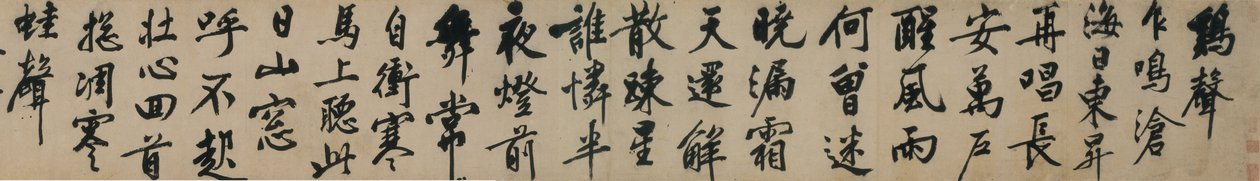 鷄聲
乍鳴滄
海日東昇
再唱長
安萬戶
醒風雨
何曾迷
曉漏霜
天還解
散踈星
誰憐半
夜燈前
舞常
自衝寒
馬上聽此
日山窓
呼不起
壯心回首
揔凋零
蛙聲